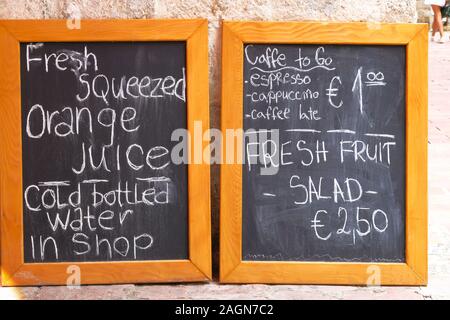 Fresh
Squeezed
Orange
Juice
Cold bottled
water
in Shop
Caffe to Go
- espresso
- cappuccino
- caffee late
€ 1.00
FRESH FRUIT
- SALAD -
€ 2,50
alamy
Image ID: 2AGN7C2
www.alamy.com